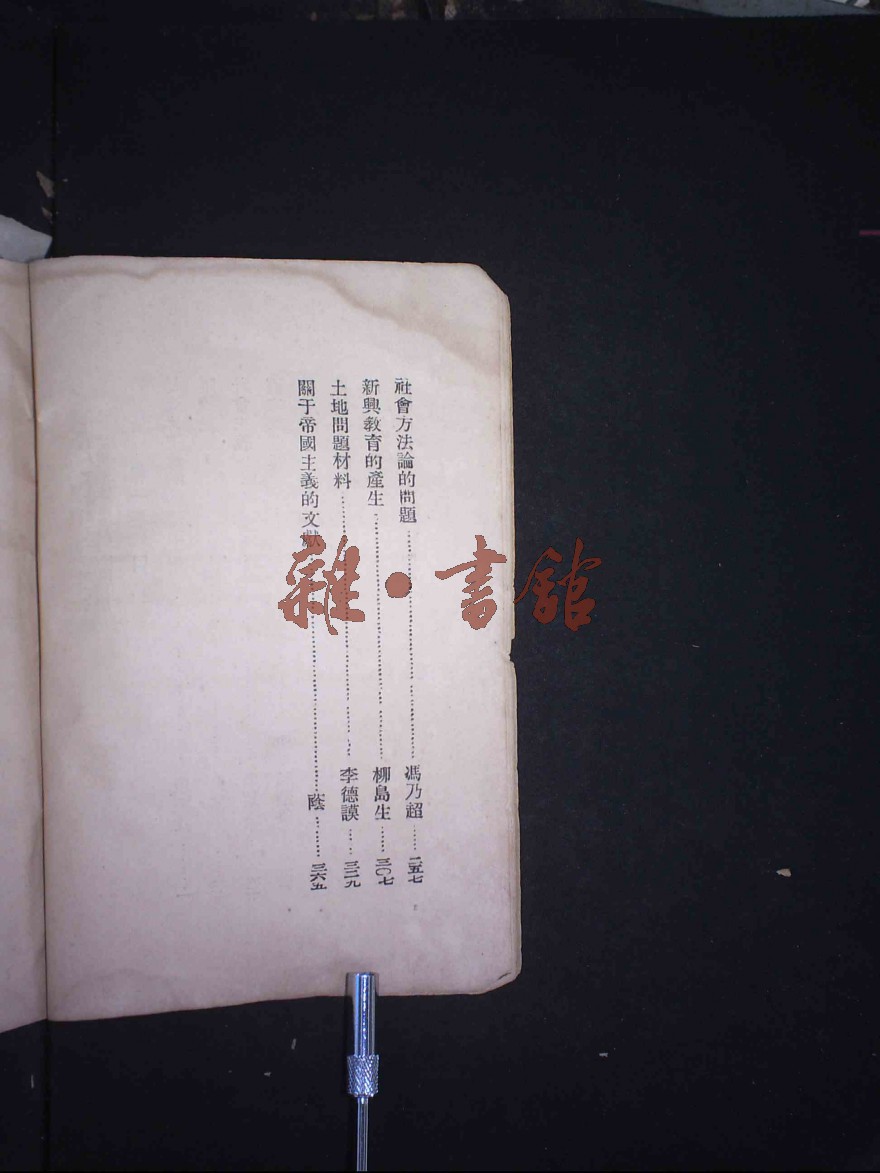 社會方法論的問題……馮乃超……二五七
新興教育的產生……柳島生……三〇七
土地問題材料……李德謨……三二九
關于帝國主義的文獻……蔭……三六五
雜·書館